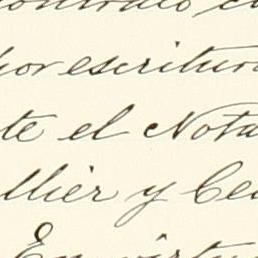 contrato c
por escritura
te el Nota
llier y Ce
En virtu